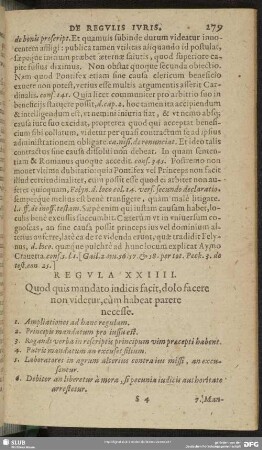 DE REGVLIS IVRIS. 279
de bonis proscript. Et quamuis subinde durum videatur inno-
centem affligi: publica tamen vtilitas aliquando id postulat,
sæpeque totum præbet æternæ salutis, quod superiore ca-
pite fusius diximus. Non obstat quoque secunda obiectio.
Nam quod Pontifex etiam sine causa clericum beneficio
exuere non potest, verius esse multis argumentis asserit Car-
dinalis. consi. 141. Quia licet communiter pro arbitrio suo in
beneficijs statuere possit, d. cap. 2. hoc tamen ita accipiendum
& intelligendum est, vt nemini iniuria fiat, & vt nemo absque
causa iure suo excidat, propterea quod qui acceptat benefi-
cium sibi collatum, videtur per quasi contractum se ad ipsius
administrationem obligare ca. nisi. de renunciat. Et ideo talis
contractus sine causa dissolui non debeat. In quam senten-
tiam & Romanus quoque accedit. consi. 341. Postremo non
mouet vltima dubitatio quia Pontifex vel Princeps non facit
illud certis ordinaliter, cum possit esse quod ei aliter non au-
ferret quicquam, Felyn. d. loco col. 14. vers. secundo declaratio,
semperque melius est benè transigere, quàm malè litigare.
l. ff. de inoff. testam. Sæpè enim qui iustam causam habet, lo-
culis benè excussis fine succumbit. Cæterum vt in vniuersum co-
gnoscas, an sine causa possit princeps ius vel dominium al-
terius auferre,
d. loco. atque pulchrè ad hunc locum explicat Aymo
Crauetta. consi. 1.
test. con. 23.]
REGVLA XXIIII.
Quod quis mandato iudicis facit, dolo facere
non videtur, cùm habeat parere
necesse.
1. Ampliationes ad hanc regulam.
2. Principis mandatum pro iusso est.
3. Rogandi verba in rescriptis principum vim præcepti habent.
4. Patris mandatum an excuset filium.
5. Laboratores in agrum alterius contra ius missi, an excu-
sentur.
6. Debitor an liberetur à mora, si pecunia iudicis authoritate
arrestetur.
S 4 7. Man-